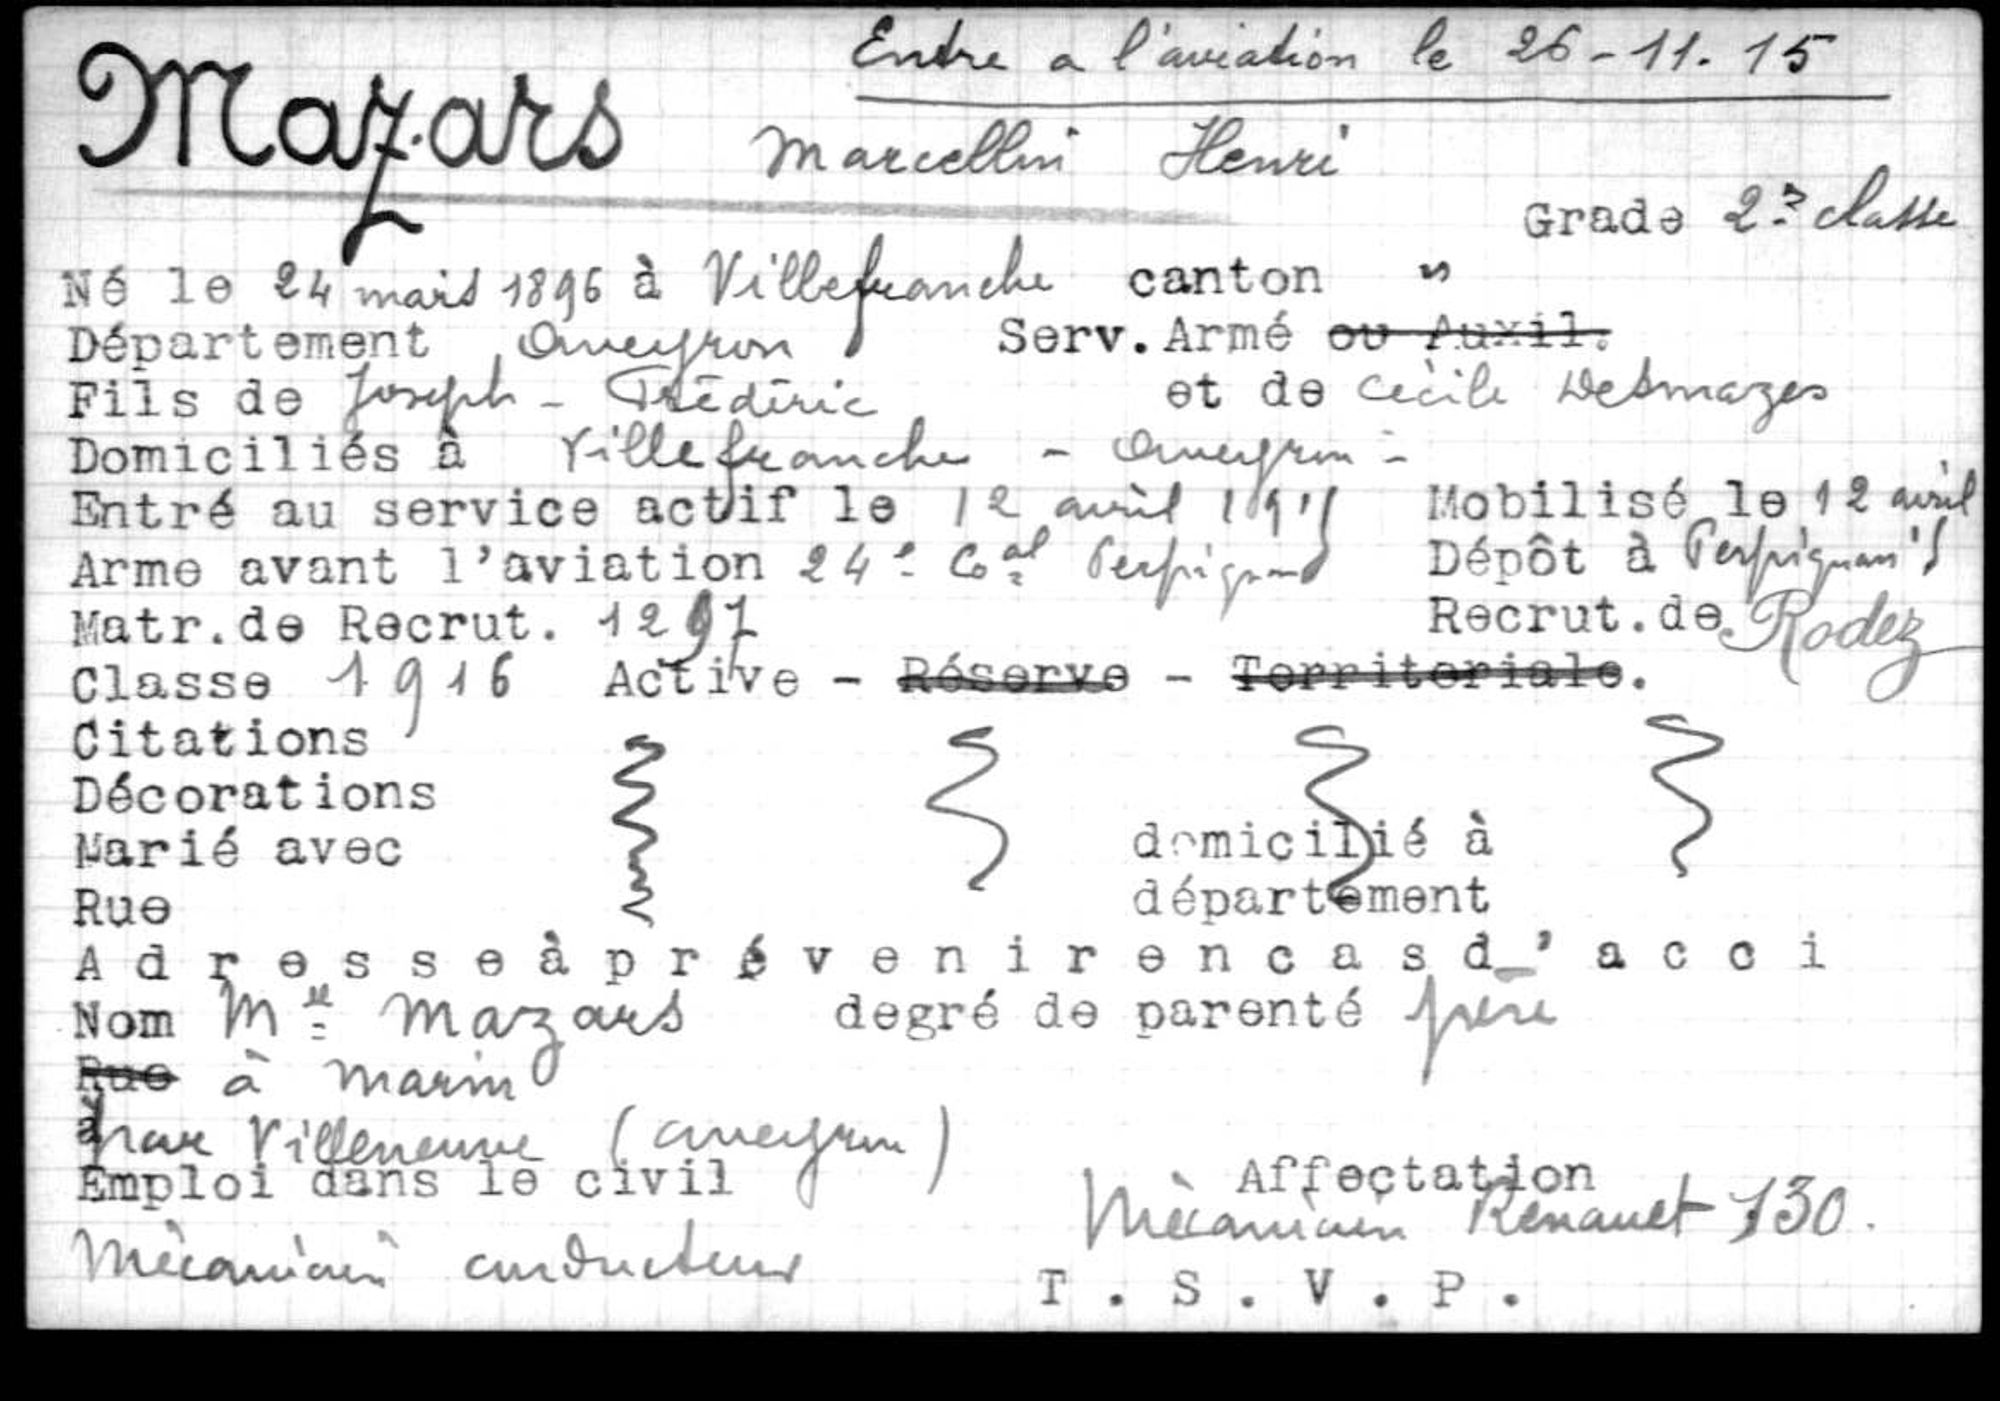 Entre a l'aviation le 26-11.15
Mazars Marcellin Henri
Grade 2e classe
Né le 24 mars 1896 à Villefranche canton "
Département Aveyron Serv.Armé ou Auxil.
Fils de Joseph - Frédéric et de Cécile Desmazes
Domiciliés à Villefranche - Aveyron -
Entré au service actif le 12 avril 1915 Mobilisé le 12 avril 15
Arme avant l'aviation 24e Coal Perpignan Dépôt à Perpignan
Matr.de Recrut. 1297 Recrut.de Rodez
Classe 1916 Active - Réserve - Territoriale.
Citations
Décorations
Marié avec domicilié à
Rue département
Adresse à prévenir en cas d'acci
Nom Mr Mazars degré de parenté père
Rue à Marin
à par Villeneuve (Aveyron)
Emploi dans le civil Affectation
Mécanicien conducteur Mécanicien Renault 130.
T.S.V.P.